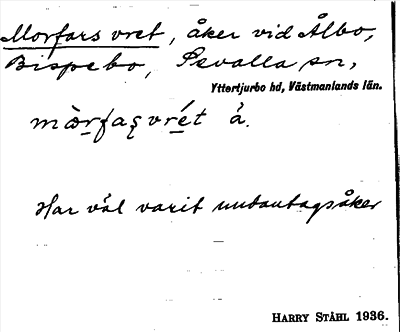 Morfars vret, åker vid Ålbo,
Bispebo, Isvalla sn,
Yttertjurbo hd, Västmanlands län.
mòrfaʂvrét å.
Har väl varit undantagsåker
HARRY STÅHL 1936.